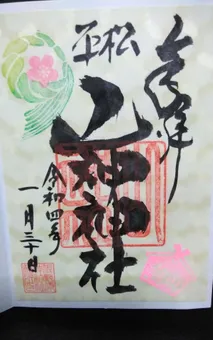 奉拝
平松
山神神社
令和四年
一月三十日